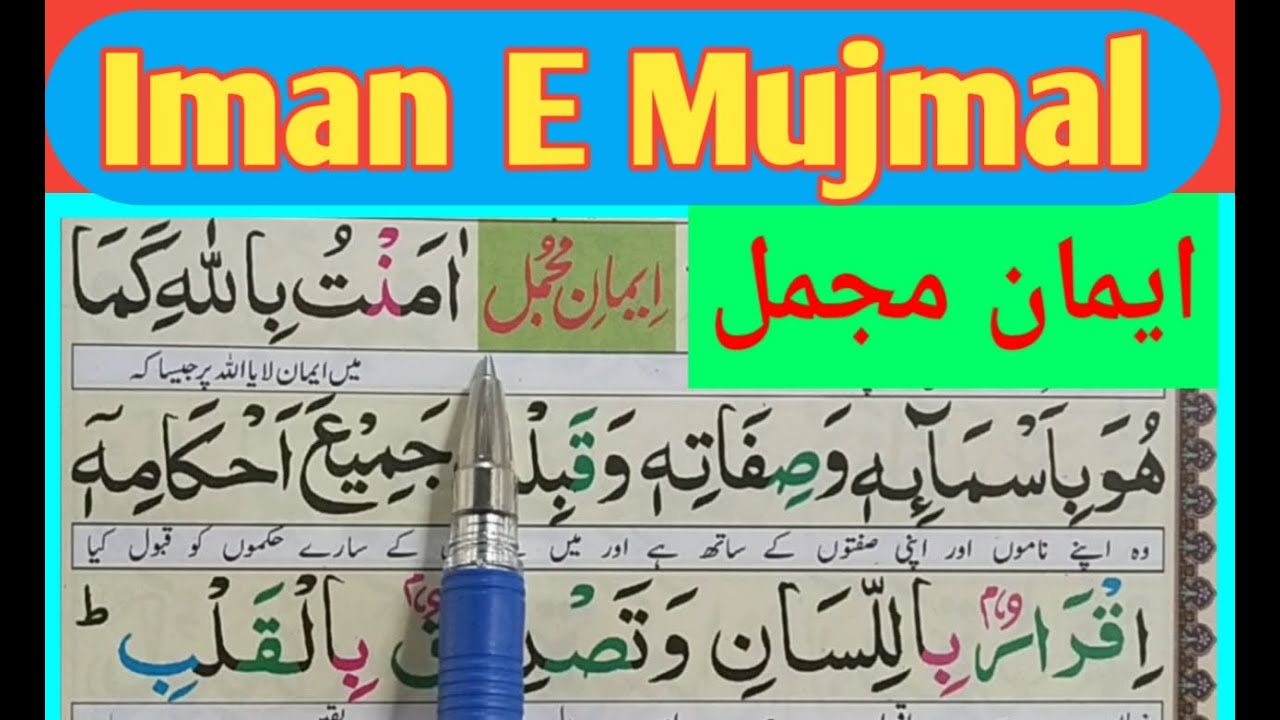 Iman E Mujmal
ایمان مجمل
اِیمانِ مُجْمَل اٰمَنْتُ بِاللّٰهِ كَمَا
میں ایمان لایا اللہ پر جیسا کہ
هُوَ بِاَسْمَآئِهٖ وَصِفَاتِهٖ وَقَبِلْ جَمِيْعَ اَحْكَامِهٖۤ
وہ اپنے ناموں اور اپنی صفتوں کے ساتھ ہے اور میں کے سارے حکموں کو قبول کیا
اِقْرَارٌۢ بِاللِّسَانِ وَتَصْدِ قٌۢ بِالْقَلْبِ ؕ